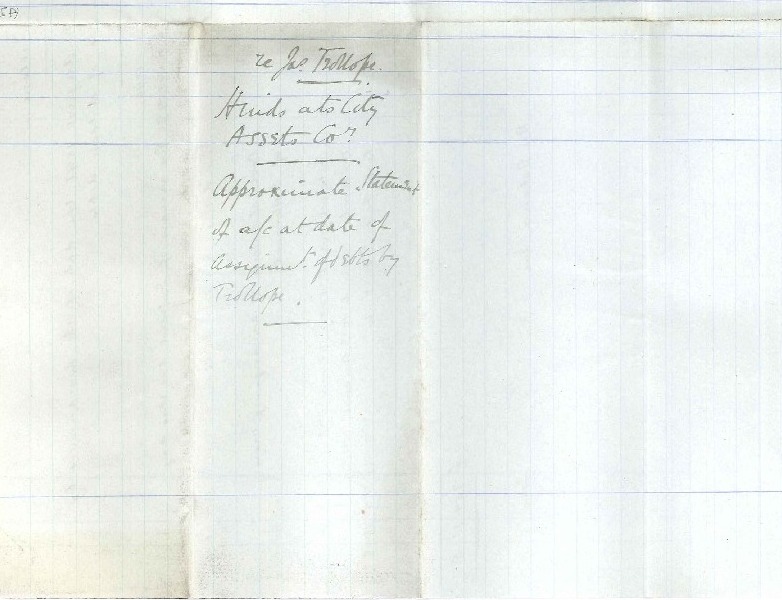 re Jas. Trollope.
Hinds ats City
Assets Coy
Approximate Statement
of a/c at date of
Assignmt. of debts by
Trollope.